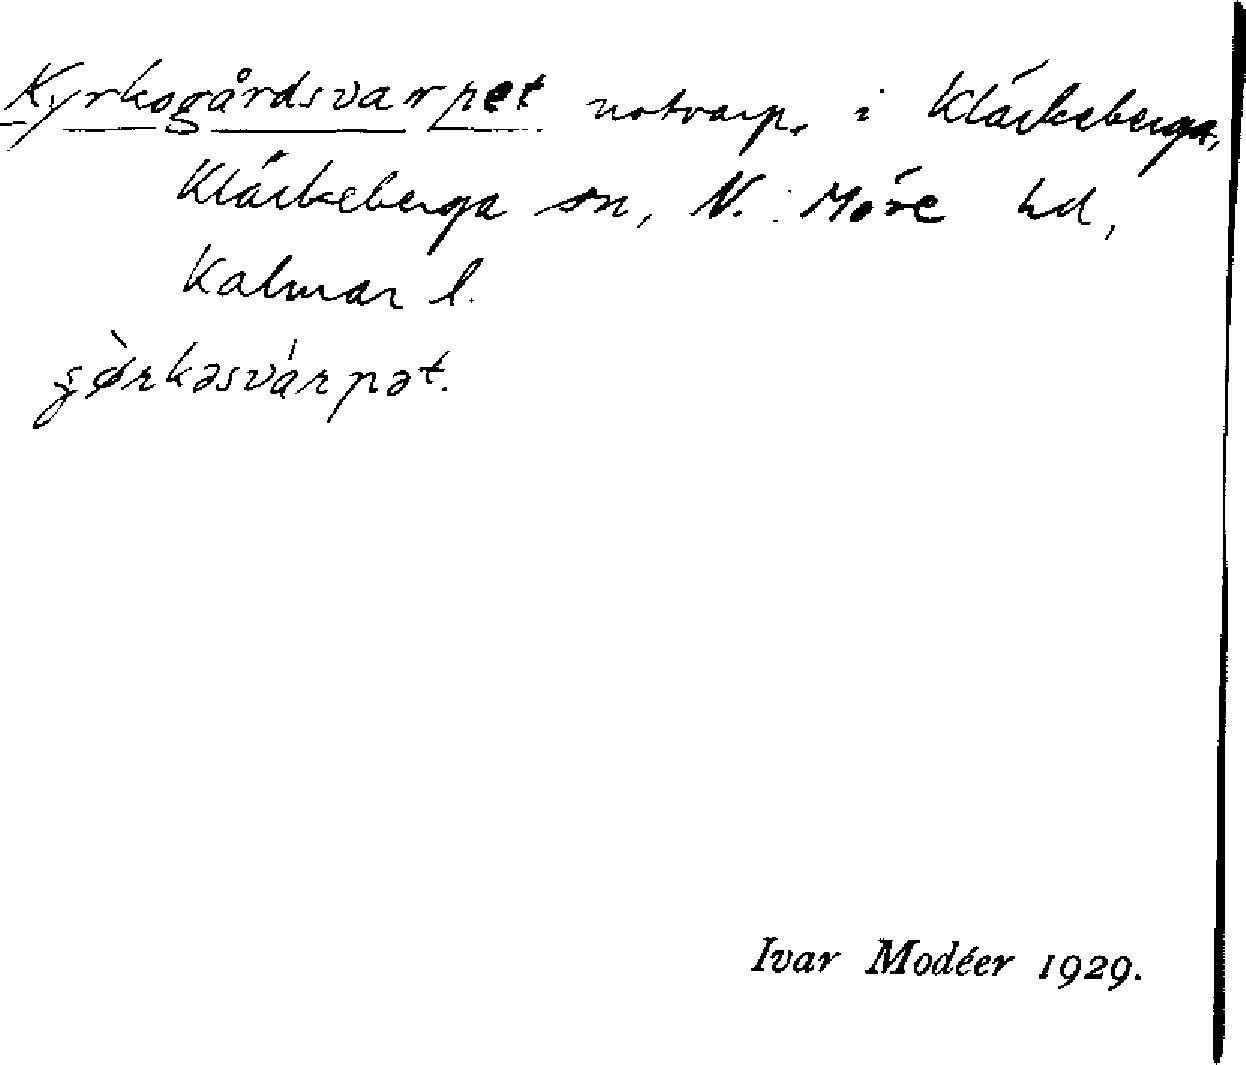 Kyrkogårdsvarpet notvarp. i Kläckeberga,
Kläckeberga sn, N. Möre hd,
Kalmar l.
şø̀rkəsvárpət.
Ivar Modéer 1929.